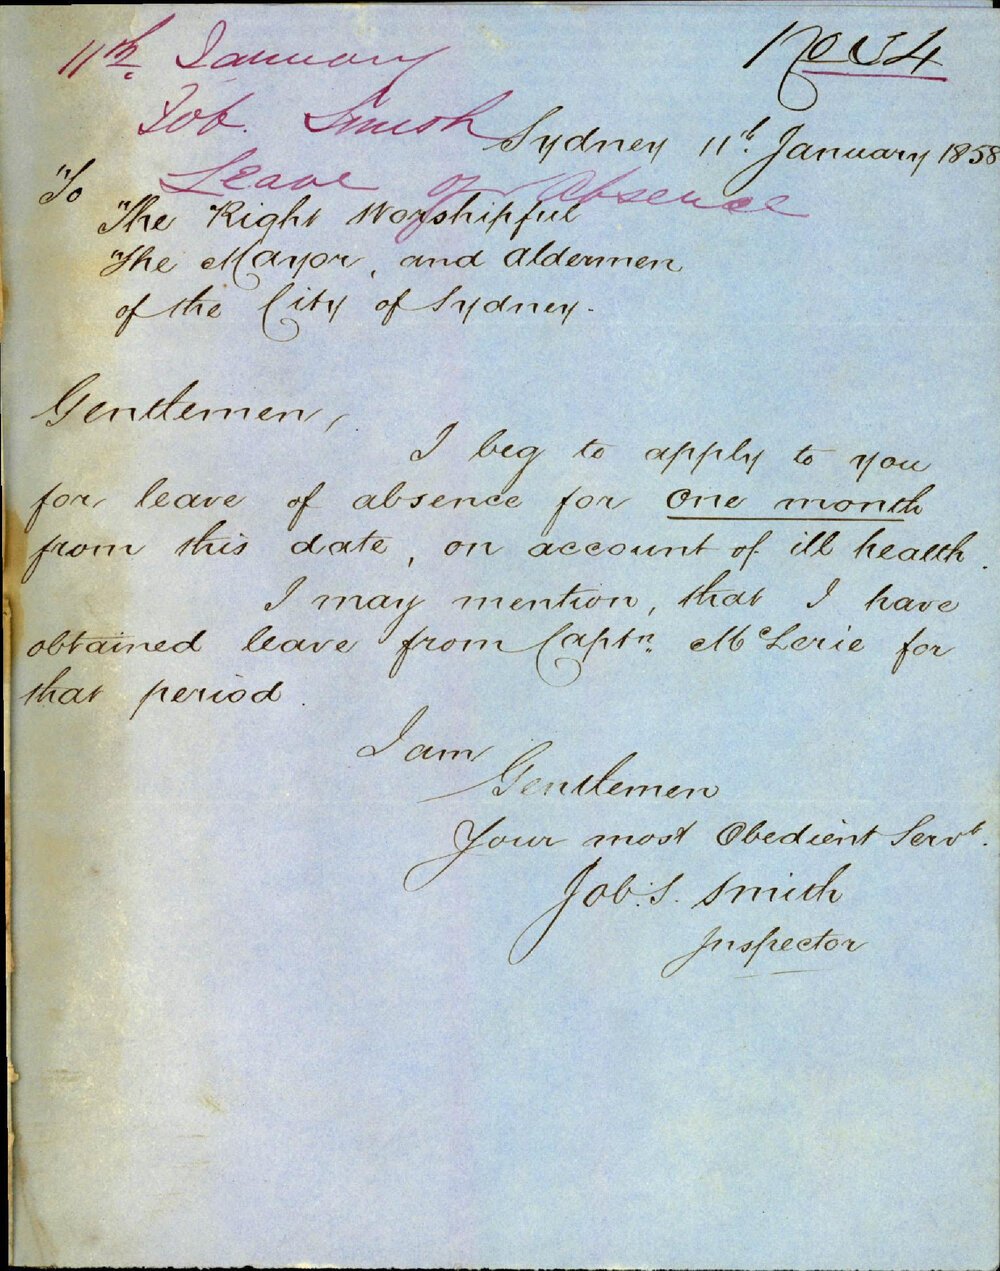 11th. January
No 34
Job. Smith
Sydney 11th. January 1858
Leave of Absence
To
The Right Worshipful
The Mayor, and Aldermen
of the City of Sydney.
Gentlemen,
I beg to apply to you
for leave of absence for one month
from this date, on account of ill health.
I may mention, that I have
obtained leave from Captn. McLerie for
that period.
I am
Gentlemen
Your most Obedient Servt.
Job. S. Smith
Inspector